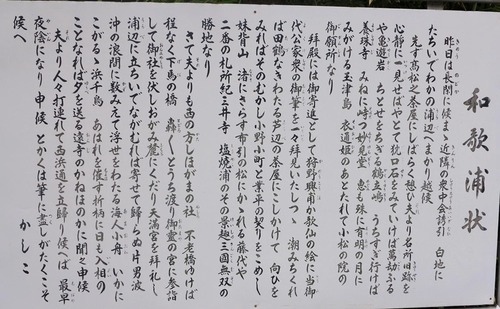 和歌浦状
昨日は長閑に候まゝ近隣の衆中会誘引 白地に
たちいでわかの浦辺へまかり越候
先す髙松之茶屋にしばらく憩ひ夫より名所旧跡を
心静に一見せばやとて 口をみていけば萬劫ふる
や亀遊岩 ちとせをちぎる鶴立嶋 うちすぎ行けば
養珠寺 みねに峙つ妙見堂 恵も殊に有明の月に
みがける玉津島 衣通姫のあとたれて小松の院の
御願所なり
拝殿には御寄進として狩野興甫か歌仙の絵に当御
代公家衆の御筆を一々拝見いたしつゝ 潮みちくれ
ば田鶴なきわたる芦辺の茶屋にこしかけて 向ひを
みればそのむかし小野小町と業平の契りをこめし
妹背山 渚にさらす布引の松にかゝれる藤代や
二番の札所紀三井寺 塩焼浦のその景趣三國無双の
勝地なり
さて夫よりも西の方しほがまの社 不老橋ゆけば
程なく下馬の橋 轟くとうち渡り御霊の宮に参詣
して御社を伏しおがみ麓にくだり天満宮を拝礼し
浦辺に立ちいでながむれば寄せて帰らぬ片男波
沖の浪間に数みえて浮世をわたる海人小舟 いかに
こがるゝ浜千鳥 あはれを催す折柄に日も入相の
ことなれば夕を送る遠寺のかねほのかに聞へ申候
夫より人々打連れて西浜通を立帰り候へば 最早
夜陰になり申候 とかくは筆に盡しがたくこそ
候へ
かしこ